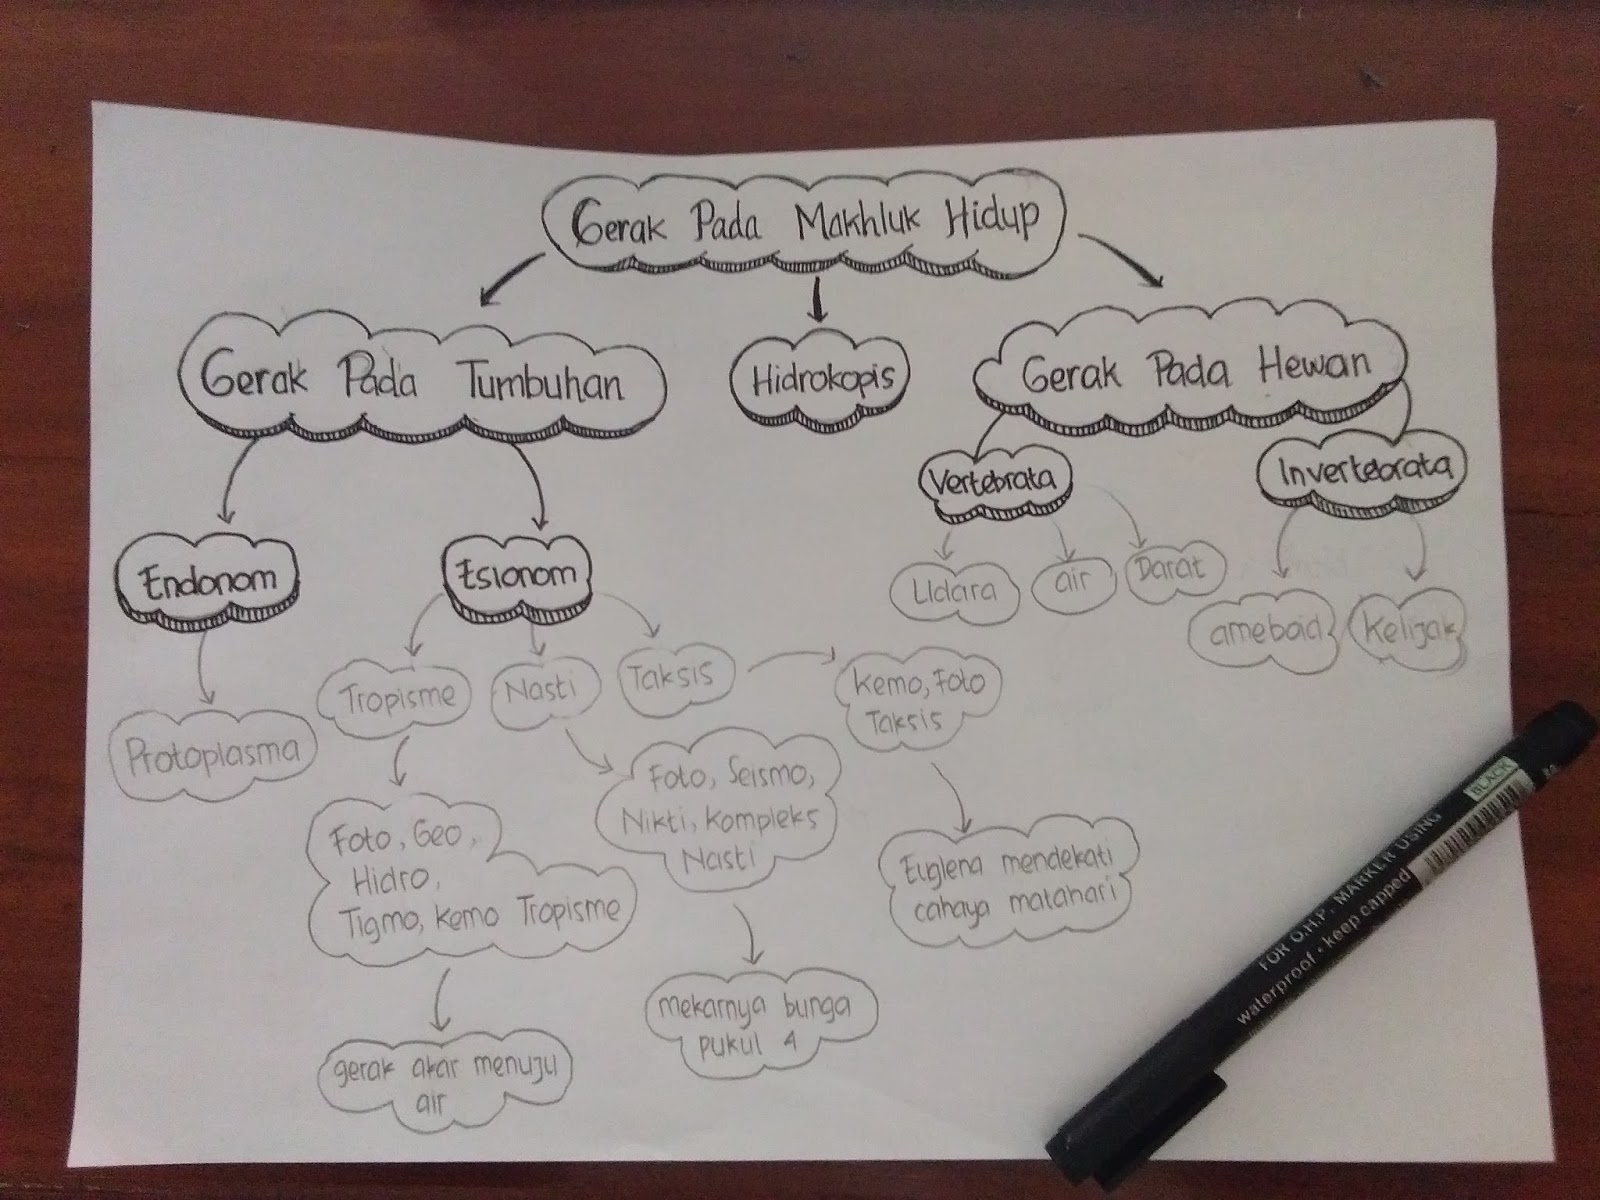 Gerak Pada Makhluk Hidup
Gerak Pada Tumbuhan
Hidrokopis
Gerak Pada Hewan
Vertebrata
Invertebrata
Endonom
Esionom
Udara
air
Darat
ameboid
Kelijak
Protoplasma
Tropisme
Nasti
Taksis
Kemo, Foto
Taksis
Foto, Seismo,
Nikti, Kompleks
Nasti
Foto, Geo,
Hidro,
Tigmo, Kemo Tropisme
Euglena mendekati
cahaya matahari
mekarnya bunga
pukul 4
gerak akar menuju
air
BLACK
FOR O.H.P. MARKER USING
waterproof · keep capped